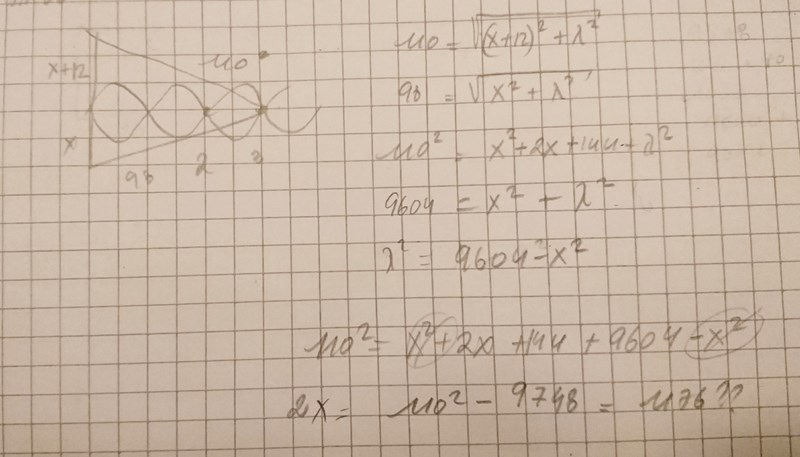 x+12
110
x
98 2 3
110 = √(x+12)² + λ²
98 = √x² + λ²
110² = x²+2x+144+λ²
9604 = x² + λ²
λ² = 9604-x²
110² = x²+2x+144+9604-x²
2x = 110² - 9748 = 1176??